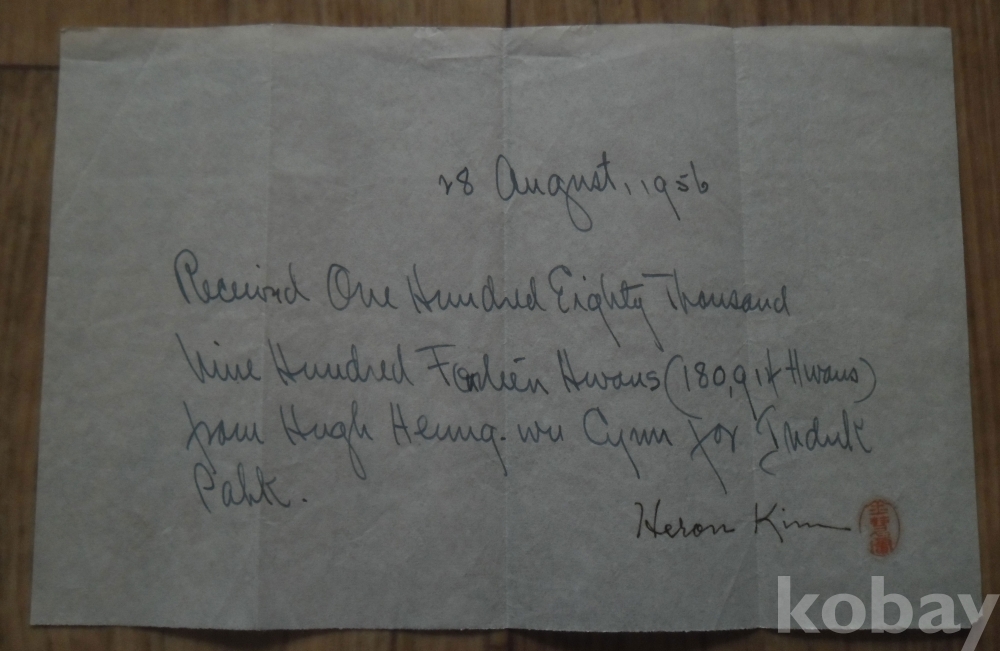 28 August, 1956
Received One Hundred Eighty Thousand
Nine Hundred Fourteen Hwans (180,914 Hwans)
from Hugh Heung-wu Cynn for Induk
Pahk.
Heron Kim
kobay